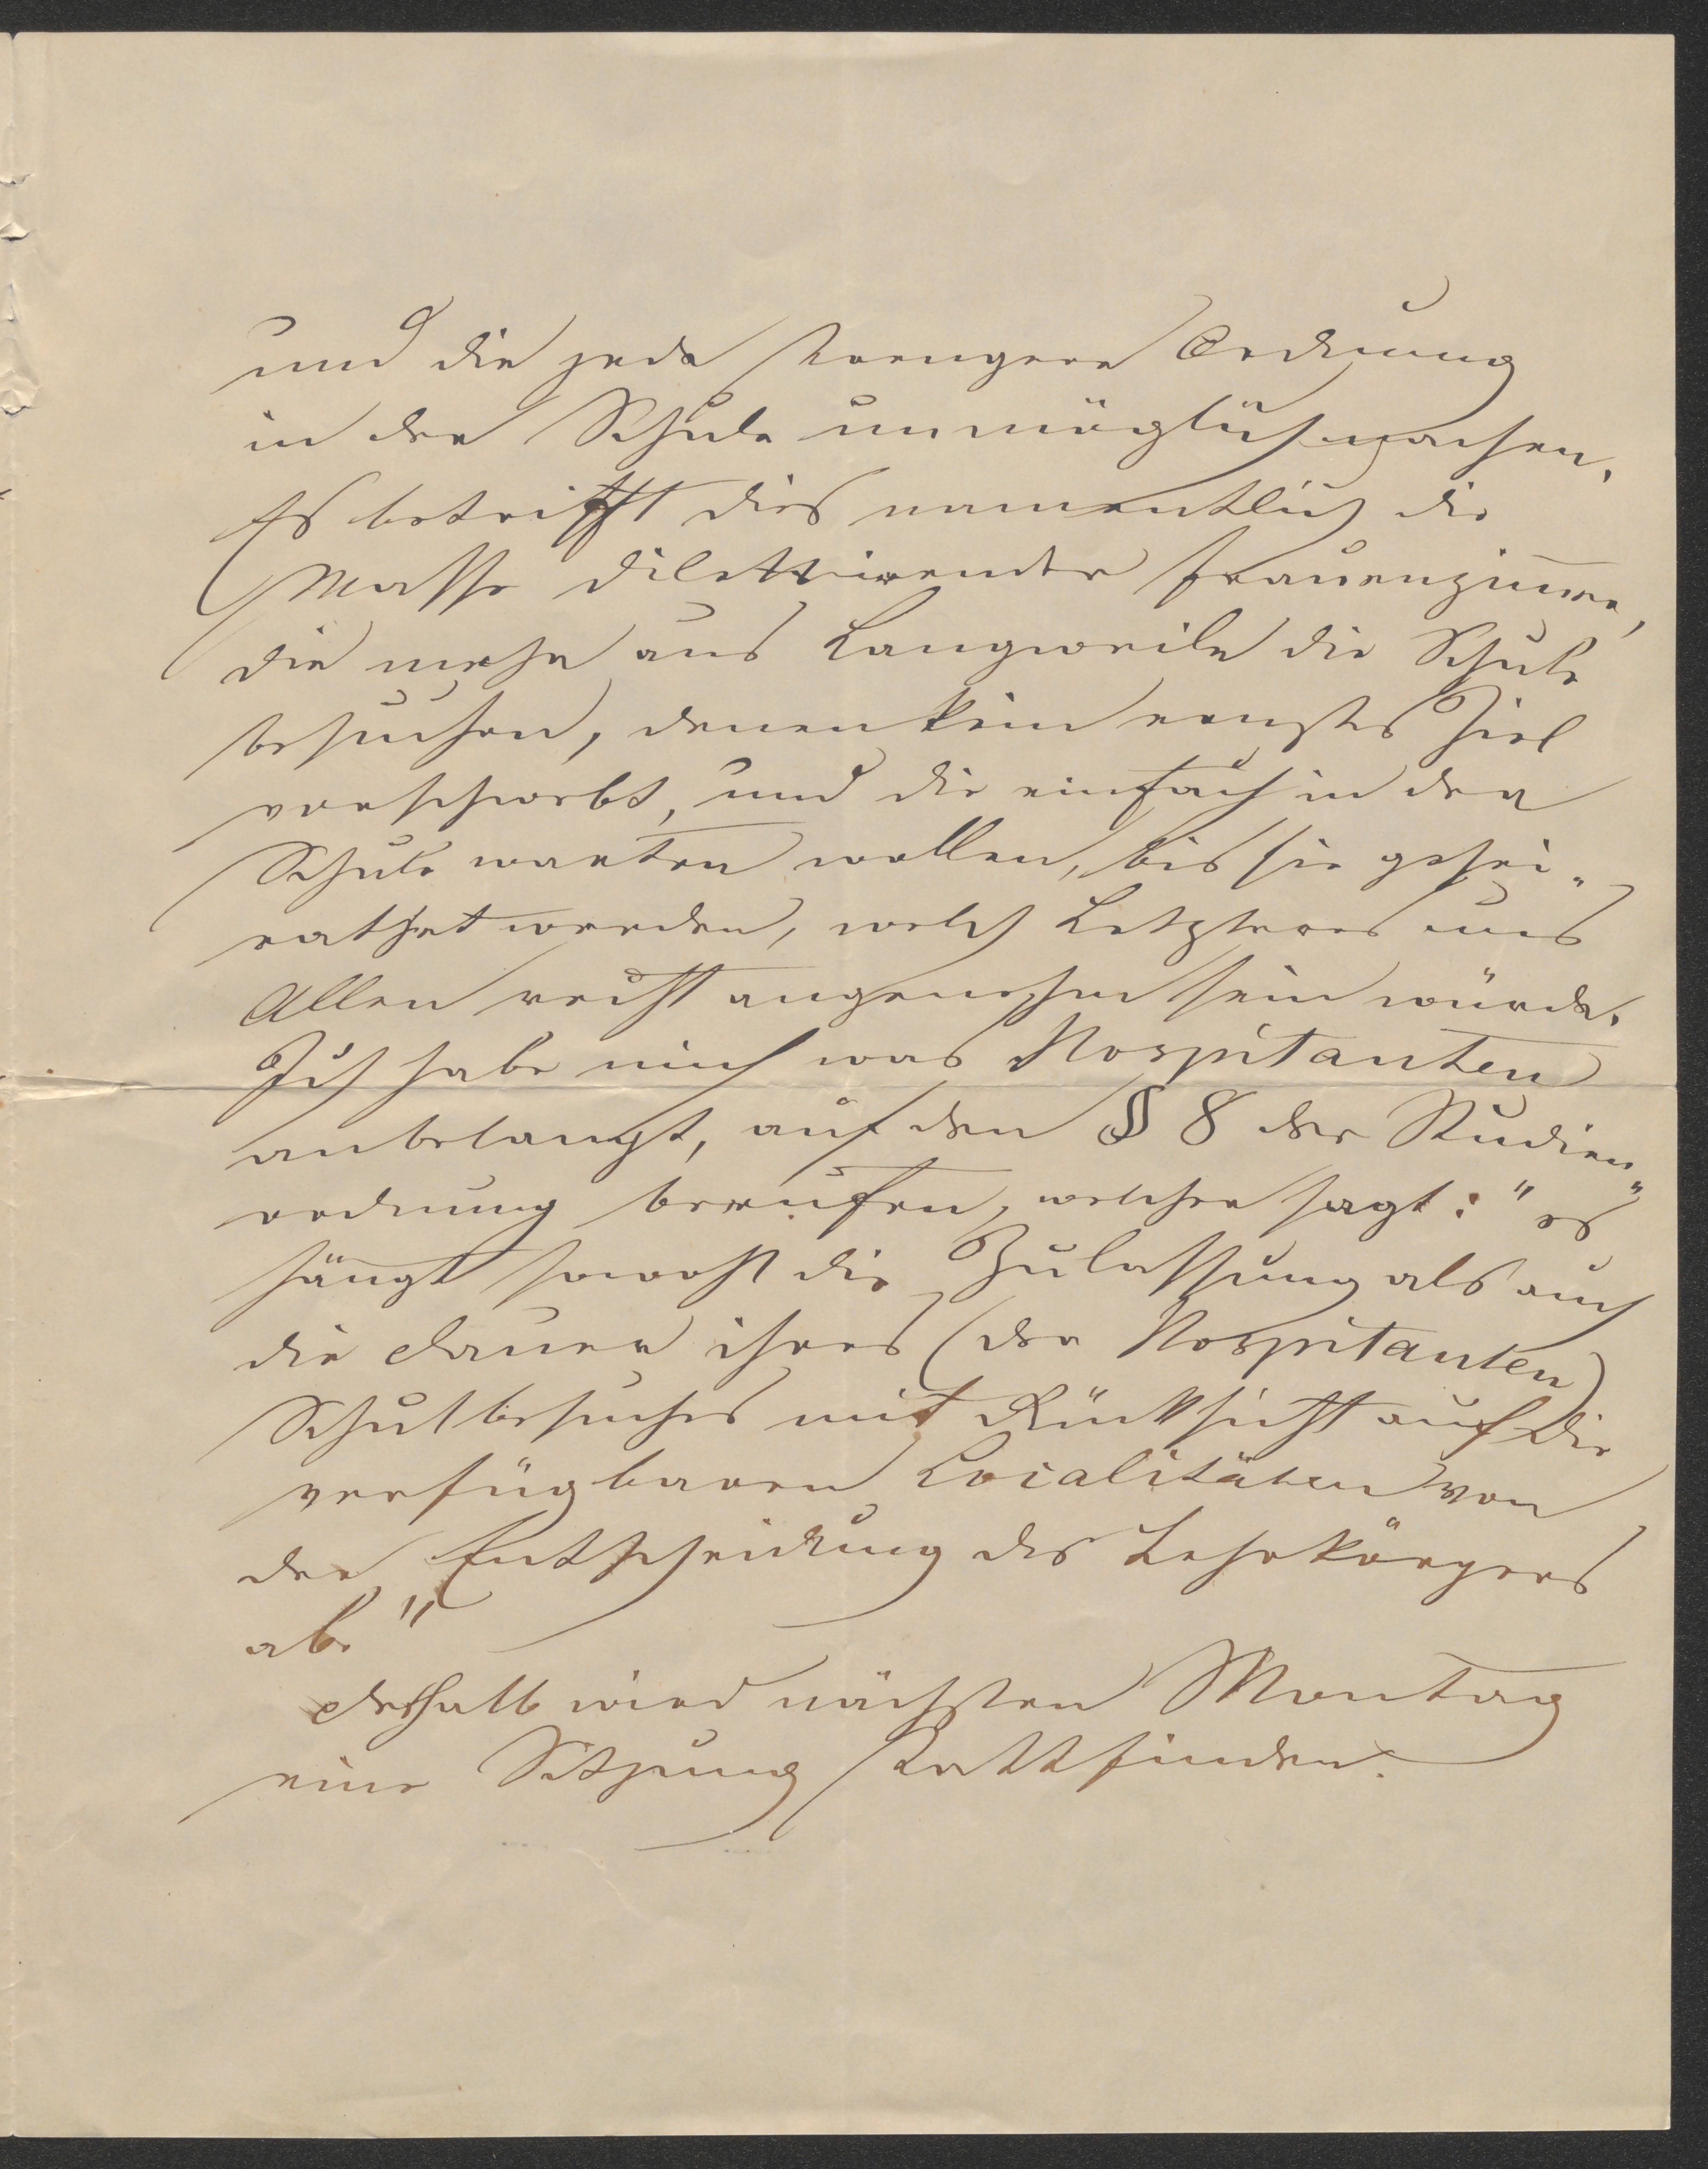 und die jede strengere Ordnung
in der Schule unmöglich machen.
Es betrifft dies namentlich die
Masse dilettirender Frauenzimer,
die mehr aus Langweile die Schule
besuchen, denen kein ernstes Ziel
vorschwebt, und die einfach in der
Schule warten wollen, bis sie gehei„
rathet werden, welch Letzteres uns
Allen recht angenehm sein würde.
Ich habe mich was Hospitanten
anbelangt, auf den § 8 der Studien„
ordnung berufen, welcher sagt: "es
hängt sowohl die Zulassung als auch
die Dauer ihres (der Hospitanten)
Schulbesuches mit Rücksicht auf die
verfügbaren Localitäten von
der Entscheidung des Lehrkörpers
ab."
Deshalb wird nächsten Montag
eine Sitzung stattfinden.